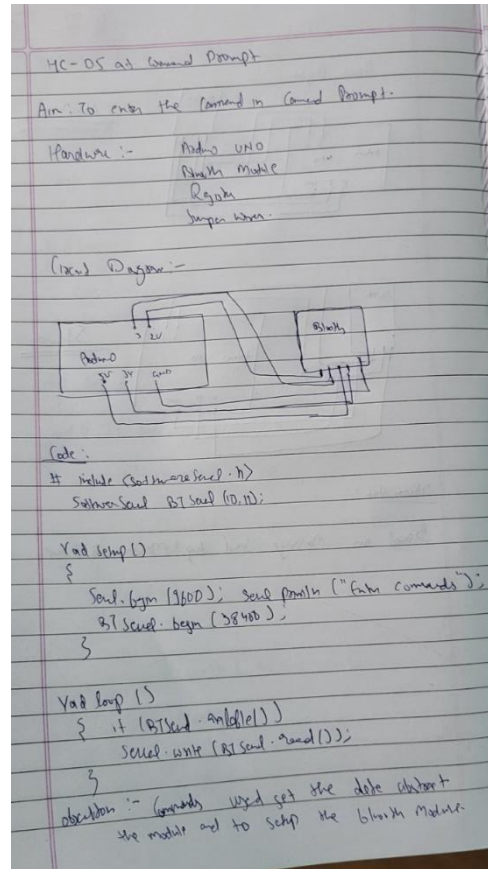 HC-05 at Command Prompt
Aim: To enter the Command in Comand Prompt.
Hardware :- Arduino UNO
Bluetooth Module
Jumper wires.
Circuit Diagram :-
Bluetooth
Arduino
5V 3V GND
Code :
# include <SoftwareSerial.h>
SoftwareSerial BTSerial (10,11);
Void setup()
{
Serial.begin (9600); Serial println ("Enter comands");
BTSerial.begin (38400);
}
Void loop ()
{ if (BTSerial.available())
Serial.write (BTSerial.read());
}
:- Commands used get the data about
the module and to setup the bluetooth Module.